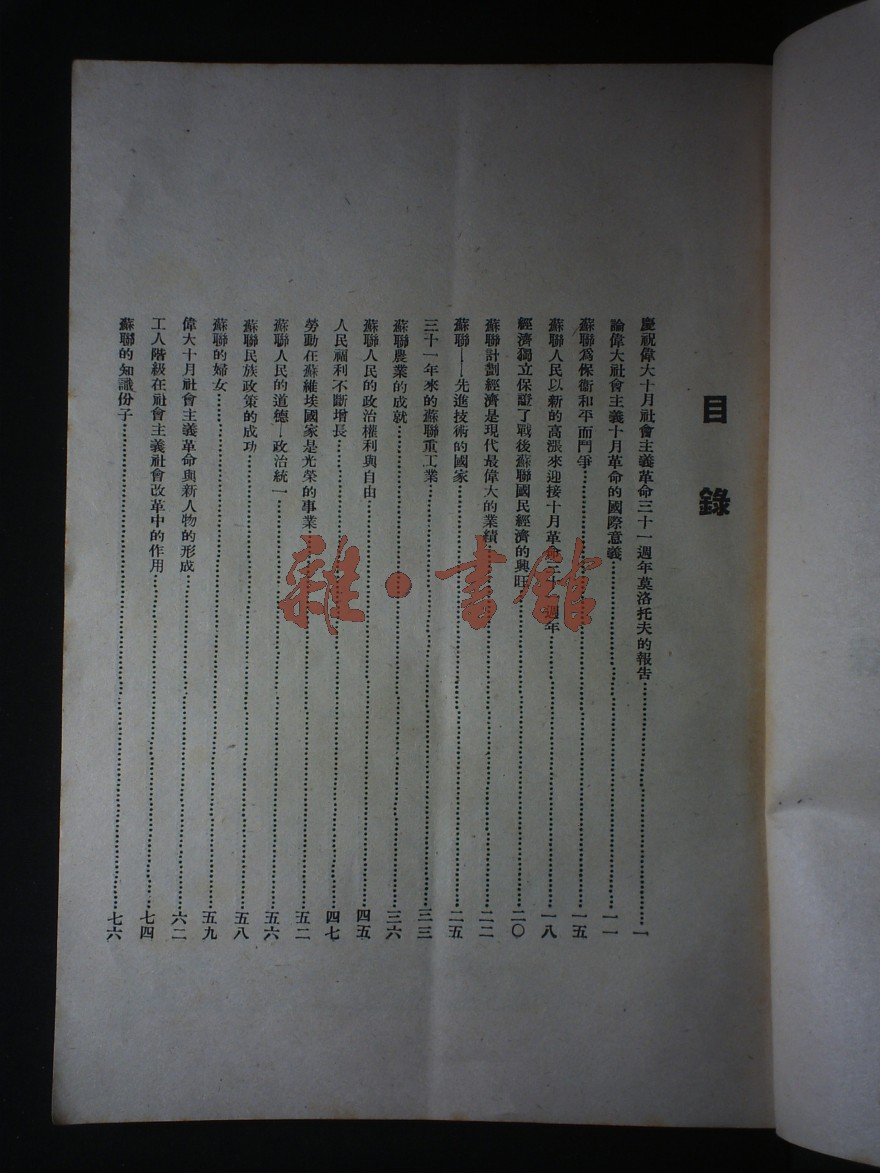 目錄
慶祝偉大十月社會主義革命三十一週年莫洛托夫的報告……一
論偉大社會主義十月革命的國際意義……一一
蘇聯為保衛和平而鬥爭……一五
蘇聯人民以新的高漲來迎接十月革命三十一週年……一八
經濟獨立保證了戰後蘇聯國民經濟的興旺……二〇
蘇聯計劃經濟是現代最偉大的業績……二二
蘇聯——先進技術的國家……二五
三十一年來的蘇聯重工業……三三
蘇聯農業的成就……三六
蘇聯人民的政治權利與自由……四五
人民福利不斷增長……四七
勞動在蘇維埃國家是光榮的事業……五二
蘇聯人民的道德—政治統一……五六
蘇聯民族政策的成功……五八
蘇聯的婦女……五九
偉大十月社會主義革命與新人物的形成……六二
工人階級在社會主義社會改革中的作用……七四
蘇聯的知識份子……七六
雜·書館